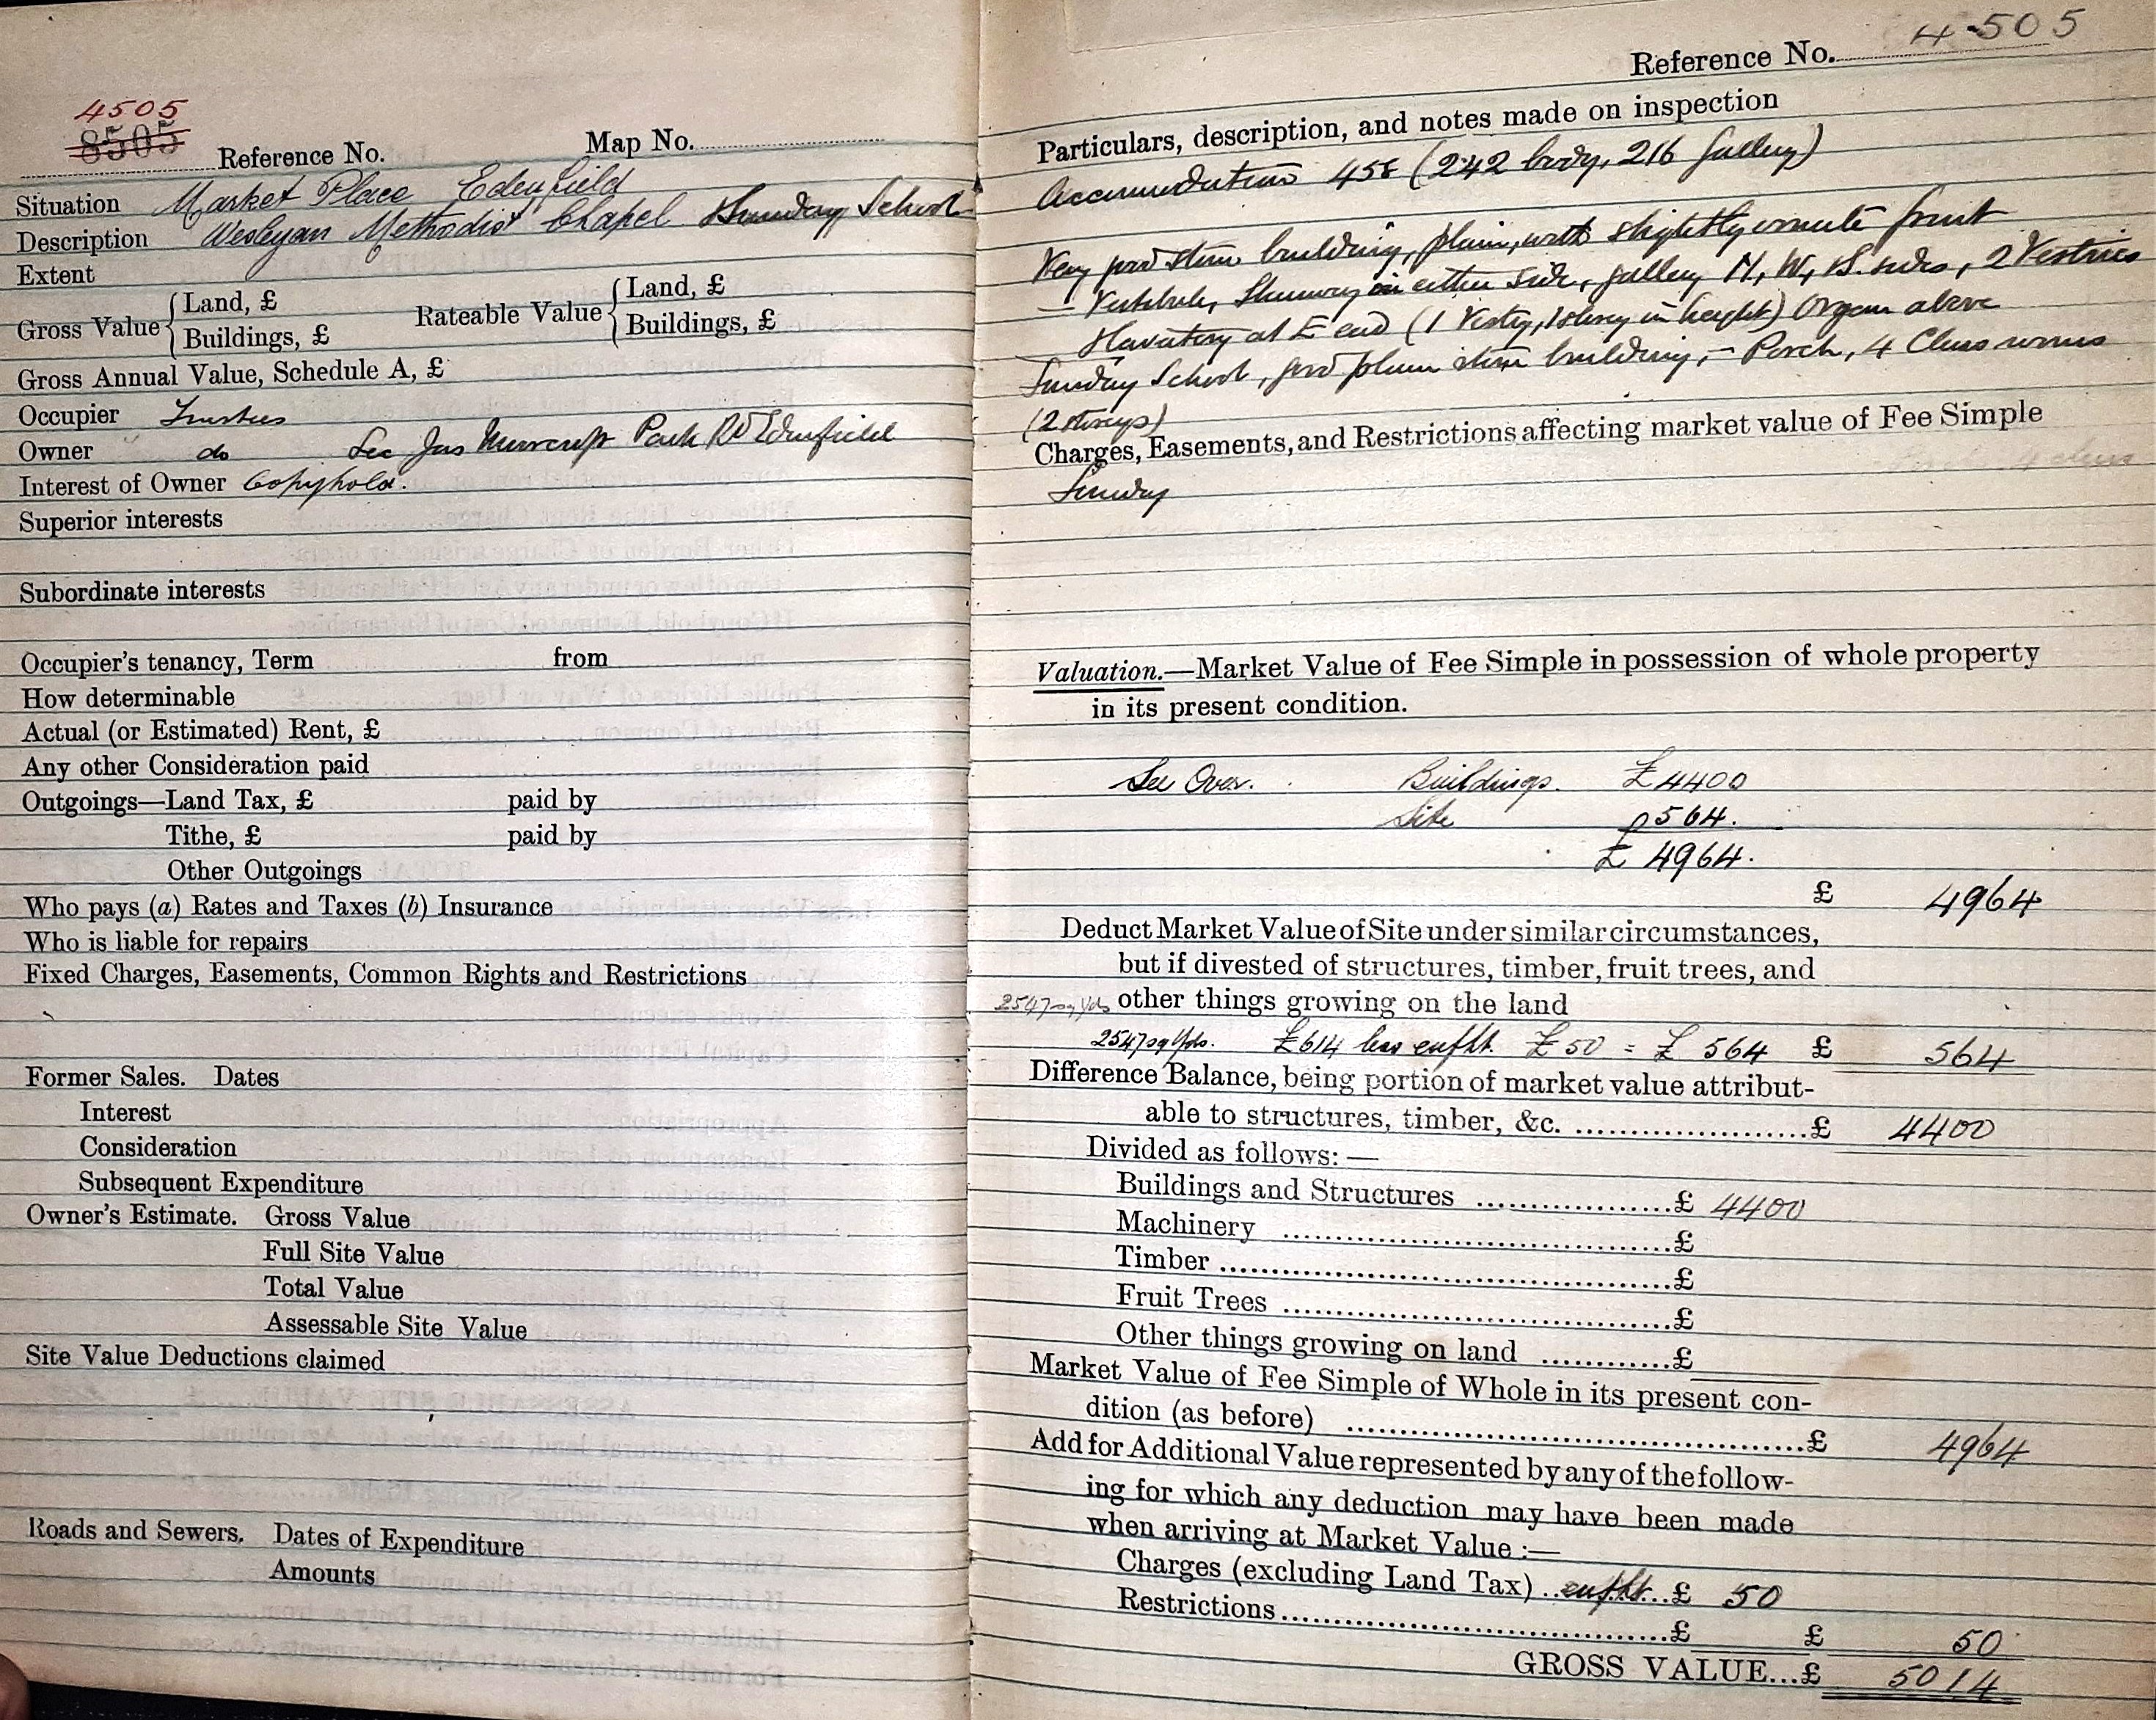 4505
8505 Reference No. Map No.
Situation Market Place Edenfield
Description Wesleyan Methodist Chapel & Sunday School
Extent
Gross Value { Land, £ Rateable Value { Land, £
Buildings, £ Buildings, £
Gross Annual Value, Schedule A, £
Occupier Trustees
Owner do Sec Jas Park Rd Edenfield
Interest of Owner Copyhold.
Superior interests
Subordinate interests
Occupier's tenancy, Term from
How determinable
Actual (or Estimated) Rent, £
Any other Consideration paid
Outgoings—Land Tax, £ paid by
Tithe, £ paid by
Other Outgoings
Who pays (a) Rates and Taxes (b) Insurance
Who is liable for repairs
Fixed Charges, Easements, Common Rights and Restrictions
Former Sales. Dates
Interest
Consideration
Subsequent Expenditure
Owner's Estimate. Gross Value
Full Site Value
Total Value
Assessable Site Value
Site Value Deductions claimed
Roads and Sewers. Dates of Expenditure
Amounts
Reference No. 4505
Particulars, description, and notes made on inspection
Accommodation 458 (242 body, 216 gallery)
Very good stone building, plain, with slightly ornate front
— Vestibule, Stairway on either side, gallery N, W, & S. sides, 2 Vestries
& lavatory at E end (1 Vestry, 1 storey in height) Organ above
Sunday School, good plain stone building, – Porch, 4 Class rooms
(2 storeys)
Charges, Easements, and Restrictions affecting market value of Fee Simple
Sunday
Valuation.—Market Value of Fee Simple in possession of whole property
in its present condition.
See Over. Buildings. £4400
Site £564.
£ 4964.
£ 4964
Deduct Market Value of Site under similar circumstances,
but if divested of structures, timber, fruit trees, and
2547 sq Yds other things growing on the land
2547 sq Yds. £614 less enfht. £50 = £564 £ 564
Difference Balance, being portion of market value attribut-
able to structures, timber, &c. ........................£ 4400
Divided as follows: —
Buildings and Structures ....................£ 4400
Machinery ........................................£
Timber ................................................£
Fruit Trees ........................................£
Other things growing on land ............£
Market Value of Fee Simple of Whole in its present con-
dition (as before) ................................................£ 4964
Add for Additional Value represented by any of the follow-
ing for which any deduction may have been made
when arriving at Market Value :—
Charges (excluding Land Tax) ..enfht...£ 50
Restrictions........................................£ £ 50
GROSS VALUE...£ 5014